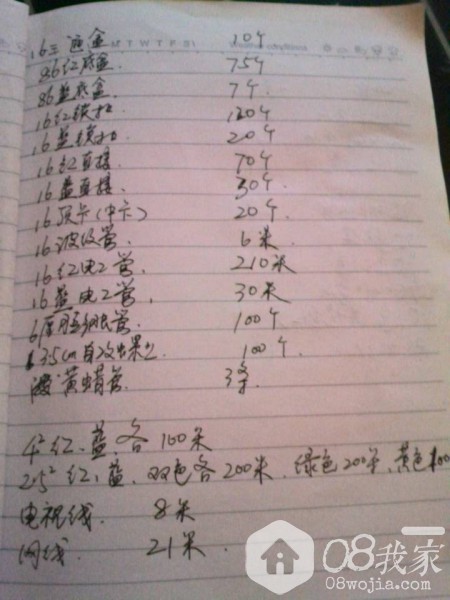 M T W T F S
16三通盒 10个
86红底盒 75个
86蓝底盒 7个
16红锁扣 120个
16蓝锁扣 20个
16红直接 70个
16蓝直接 30个
16顶卡(中卡) 20个
16波纹管 6米
16红电工管 210米
16蓝电工管 30米
6厘膨胀管 100个
3.5cm自攻 100个
黄蜡管 3条
4² 红、蓝各 100米
2.5² 红、蓝、双色各 200米、绿色 200米、黄色
电视线 8米
网线 21米
08我家
08wojia.com